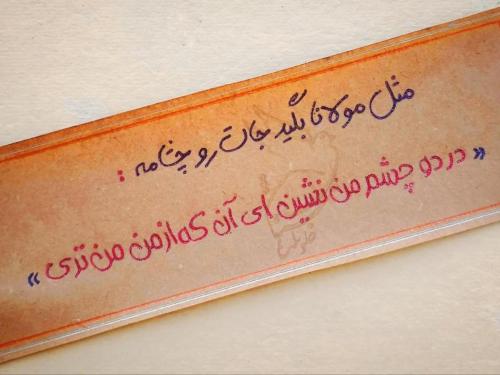 مثل مولانا بگید جات رو چشامه :
« در دو چشم من نشین ای آن که از من من تری »